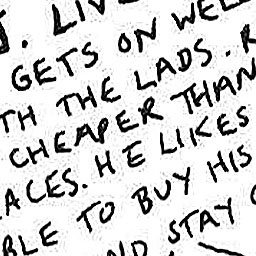 . LIV
GETS ON WELL
TH THE LADS. R
CHEAPER THAN
ACES. HE LIKES
BLE TO BUY HIS
ND STAY